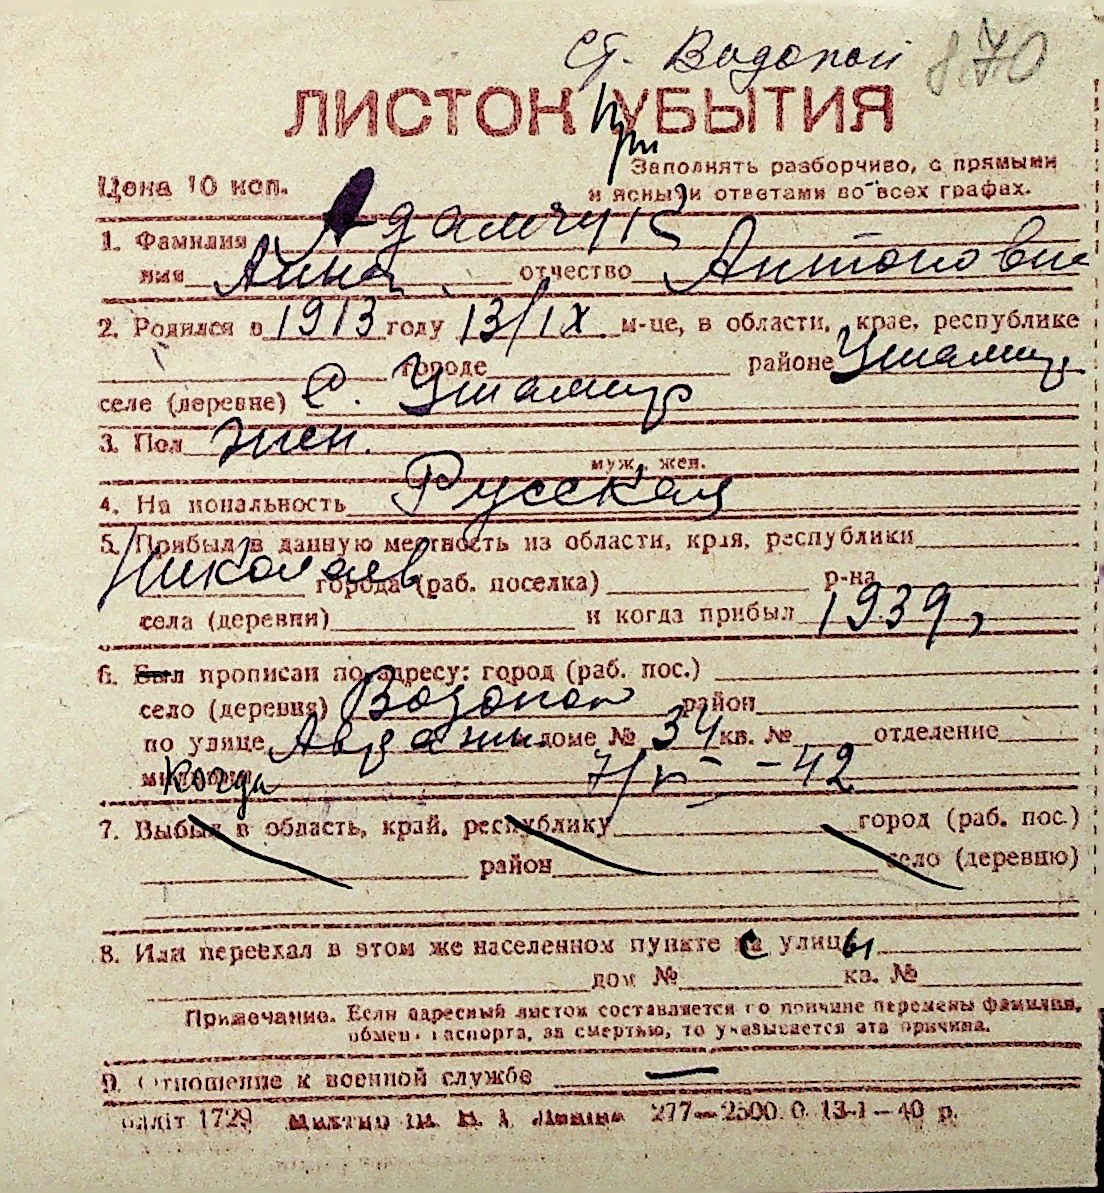 ст. Водопой 870
ЛИСТОК УБЫТИЯ
при
Заполнять разборчиво, с прямыми
Цена 10 коп.
и ясными ответами во всех графах.
1. Фамилия Адамчук
имя Анна отчество Антоновна
2. Родился в 1913 году 13/IX м-це, в области, крае, республике
городе районе Ушамир
селе (деревне) с. Ушамир
3. Пол жен.
муж., жен.
4. Национальность Русская
5. Прибыл в данную местность из области, края, республики
Николаев города (раб. поселка) р-на
села (деревни) и когда прибыл 1939,
6. Был прописан по адресу: город (раб. пос.)
село (деревня) Водопой район
по улице доме № 34 кв. № отделение
милиции Когда 7/V - -42
7. Выбыл в область, край, республику город (раб. пос.)
район село (деревню)
8. Или переехал в этом же населенном пункте с улицы
дом № кв. №
Примечание. Если адресный листок составляется по причине перемены фамилии,
обмена паспорта, за смертью, то указывается эта причина.
9. Отношение к военной службе —
1729 277—2500. 0. 13-1-40 р.